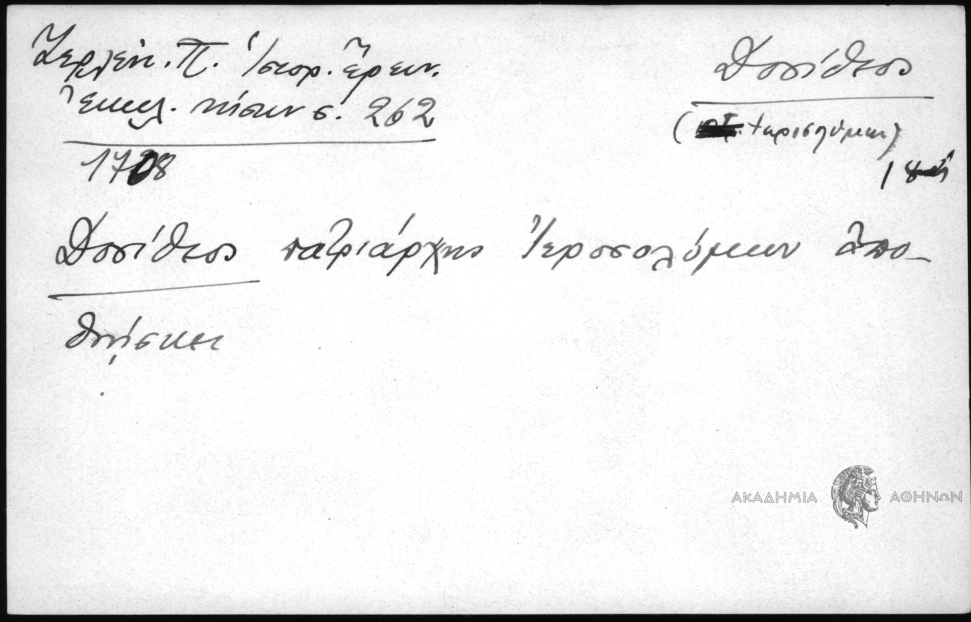 Ζερλέντ. Π. Ἱστορ. Ἔρευν.
Ἐκκλ. νήσων σ. 262
1708
Δοσίθεος
Δοσίθεος πατριάρχης Ἱεροσολύμων ἀπο-
θνήσκει
ΑΚΑΔΗΜΙΑ ΑΘΗΝΩΝ